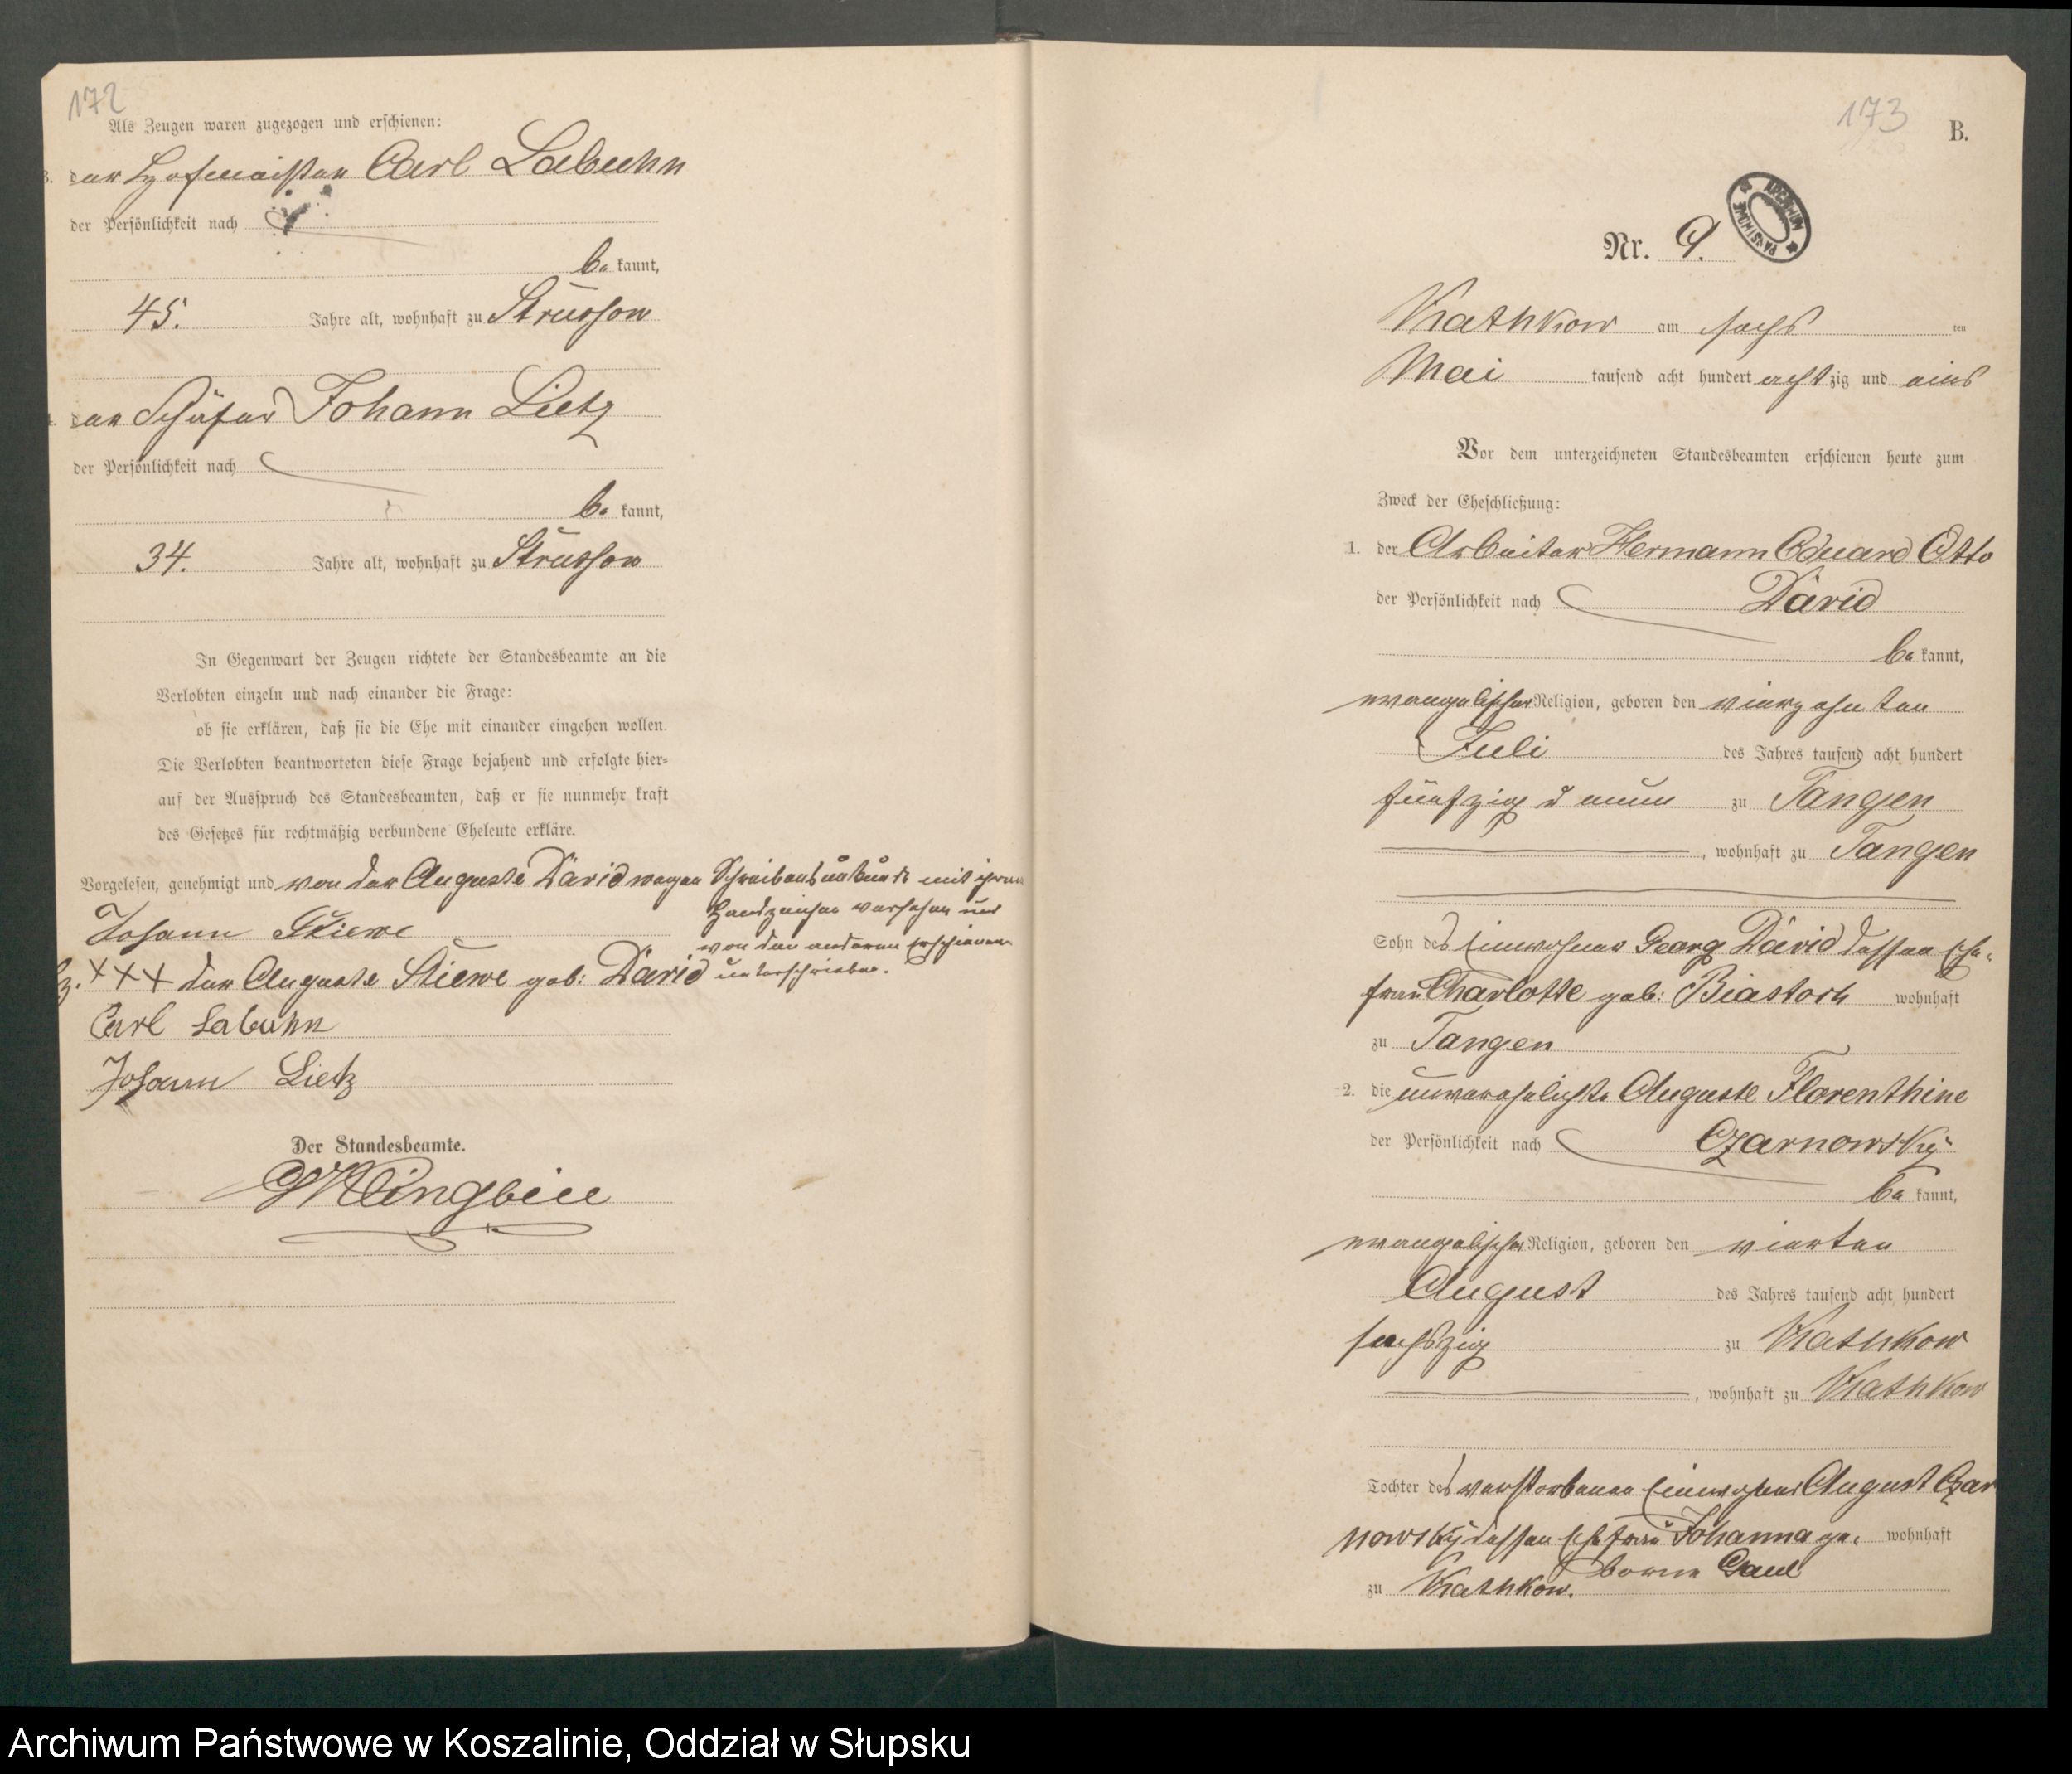 172
Als Zeugen waren zugezogen und erschienen:
3. der Hofmeister Carl Labuhn
der Persönlichkeit nach
be kannt,
45. Jahre alt, wohnhaft zu Strussow
der Schäfer Johann Lietz
der Persönlichkeit nach
be kannt,
34. Jahre alt, wohnhaft zu Strussow
In Gegenwart der Zeugen richtete der Standesbeamte an die
Verlobten einzeln und nach einander die Frage:
ob sie erklären, daß sie die Ehe mit einander eingehen wollen.
Die Verlobten beantworteten diese Frage bejahend und erfolgte hier-
auf der Ausspruch des Standesbeamten, daß er sie nunmehr kraft
des Gesetzes für rechtmäßig verbundene Eheleute erkläre.
Vorgelesen, genehmigt und von der Auguste David wegen Schreibensunkunde mit ihrem
Handzeichen versehen und
von den anderen Erschienenen
unterschrieben.
Johann Stiewe
+++ der Auguste Stiewe geb: David
Carl Labuhn
Johann Lietz
Der Standesbeamte.
Klingbeil
173
B.
ARCHIWUM PAŃSTWOWE
Nr. 9.
Kathkow am sechs ten
Mai tausend acht hundert acht zig und eins
Vor dem unterzeichneten Standesbeamten erschienen heute zum
Zweck der Eheschließung:
1. der Arbeiter Hermann Eduard Otto
der Persönlichkeit nach David
be kannt,
evangelischer Religion, geboren den vierzehnten
Juli des Jahres tausend acht hundert
fünfzig u neun zu Tangen
, wohnhaft zu Tangen
Sohn des Einwohner Georg David dessen Ehe-
frau Charlotte geb: Biastoch wohnhaft
zu Tangen
2. die unverehelichte Auguste Florenthine
der Persönlichkeit nach Czarnowsky
be kannt,
evangelischer Religion, geboren den vierten
August des Jahres tausend acht hundert
sechszig zu Kathkow
, wohnhaft zu Kathkow
Tochter des verstorbenen Einwohner August Czar
nowsky dessen Ehefrau Johanna ge- wohnhaft
borne Gaul
zu Kathkow.
Archiwum Państwowe w Koszalinie, Oddział w Słupsku